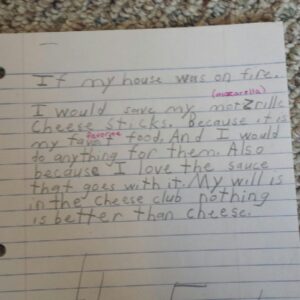 If my house was on fire.
(mozzarella)
I would save my motzrille
Cheese Sticks. Because it is
favorite
my favot food. And I would
do anything for them. Also
because I love the sauce
that goes with it. My will is
in the cheese club nothing
is better than cheese.